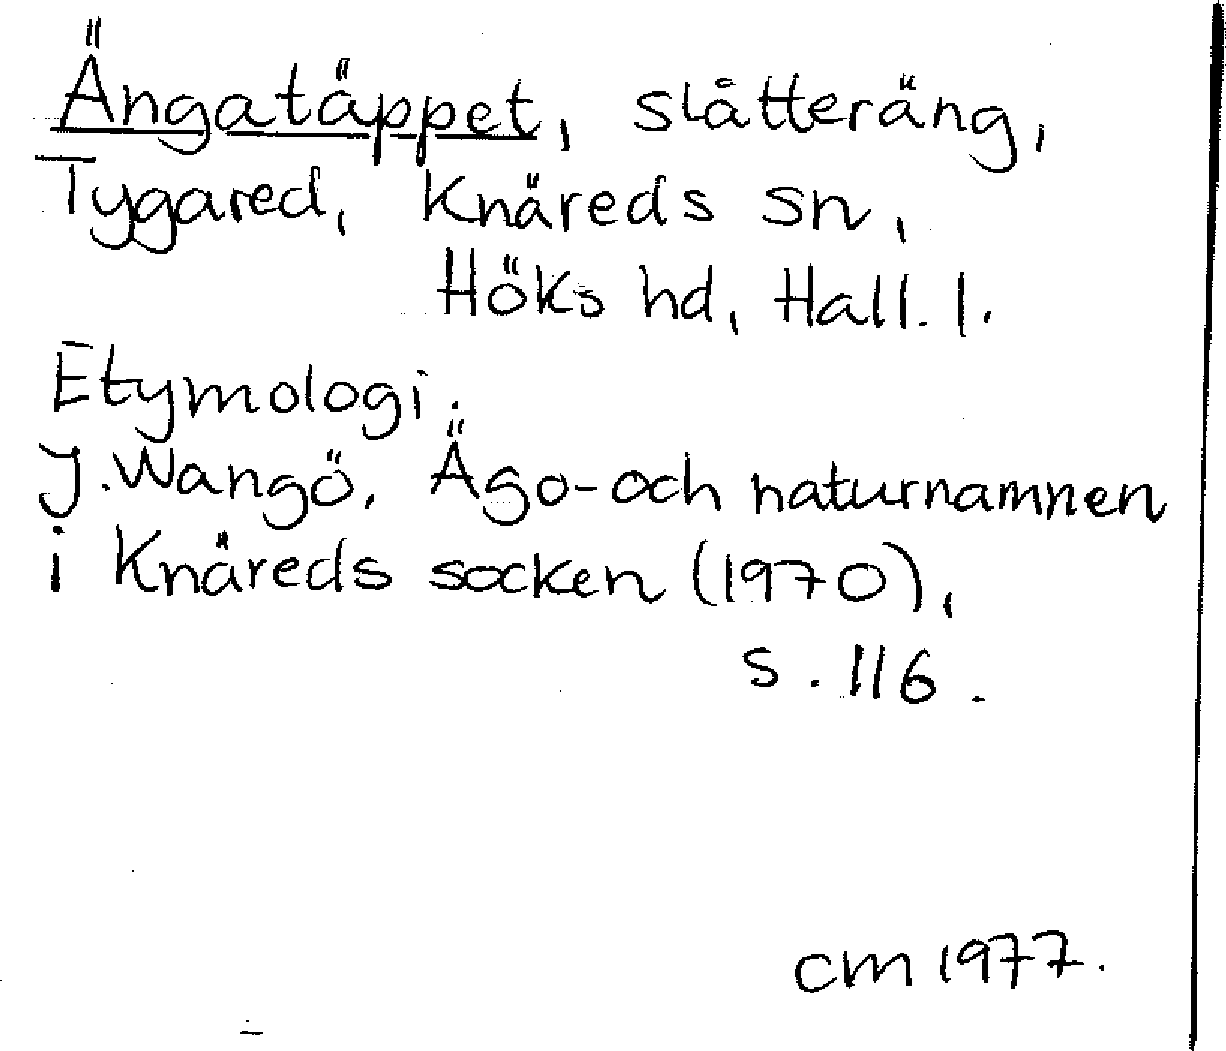 Ängatäppet, slåtteräng,
Tygared, Knäreds sn,
Höks hd, Hall. l.
Etymologi.
J. Wangö, Ägo- och naturnamnen
i Knäreds socken (1970),
s. 116.
cm 1977.